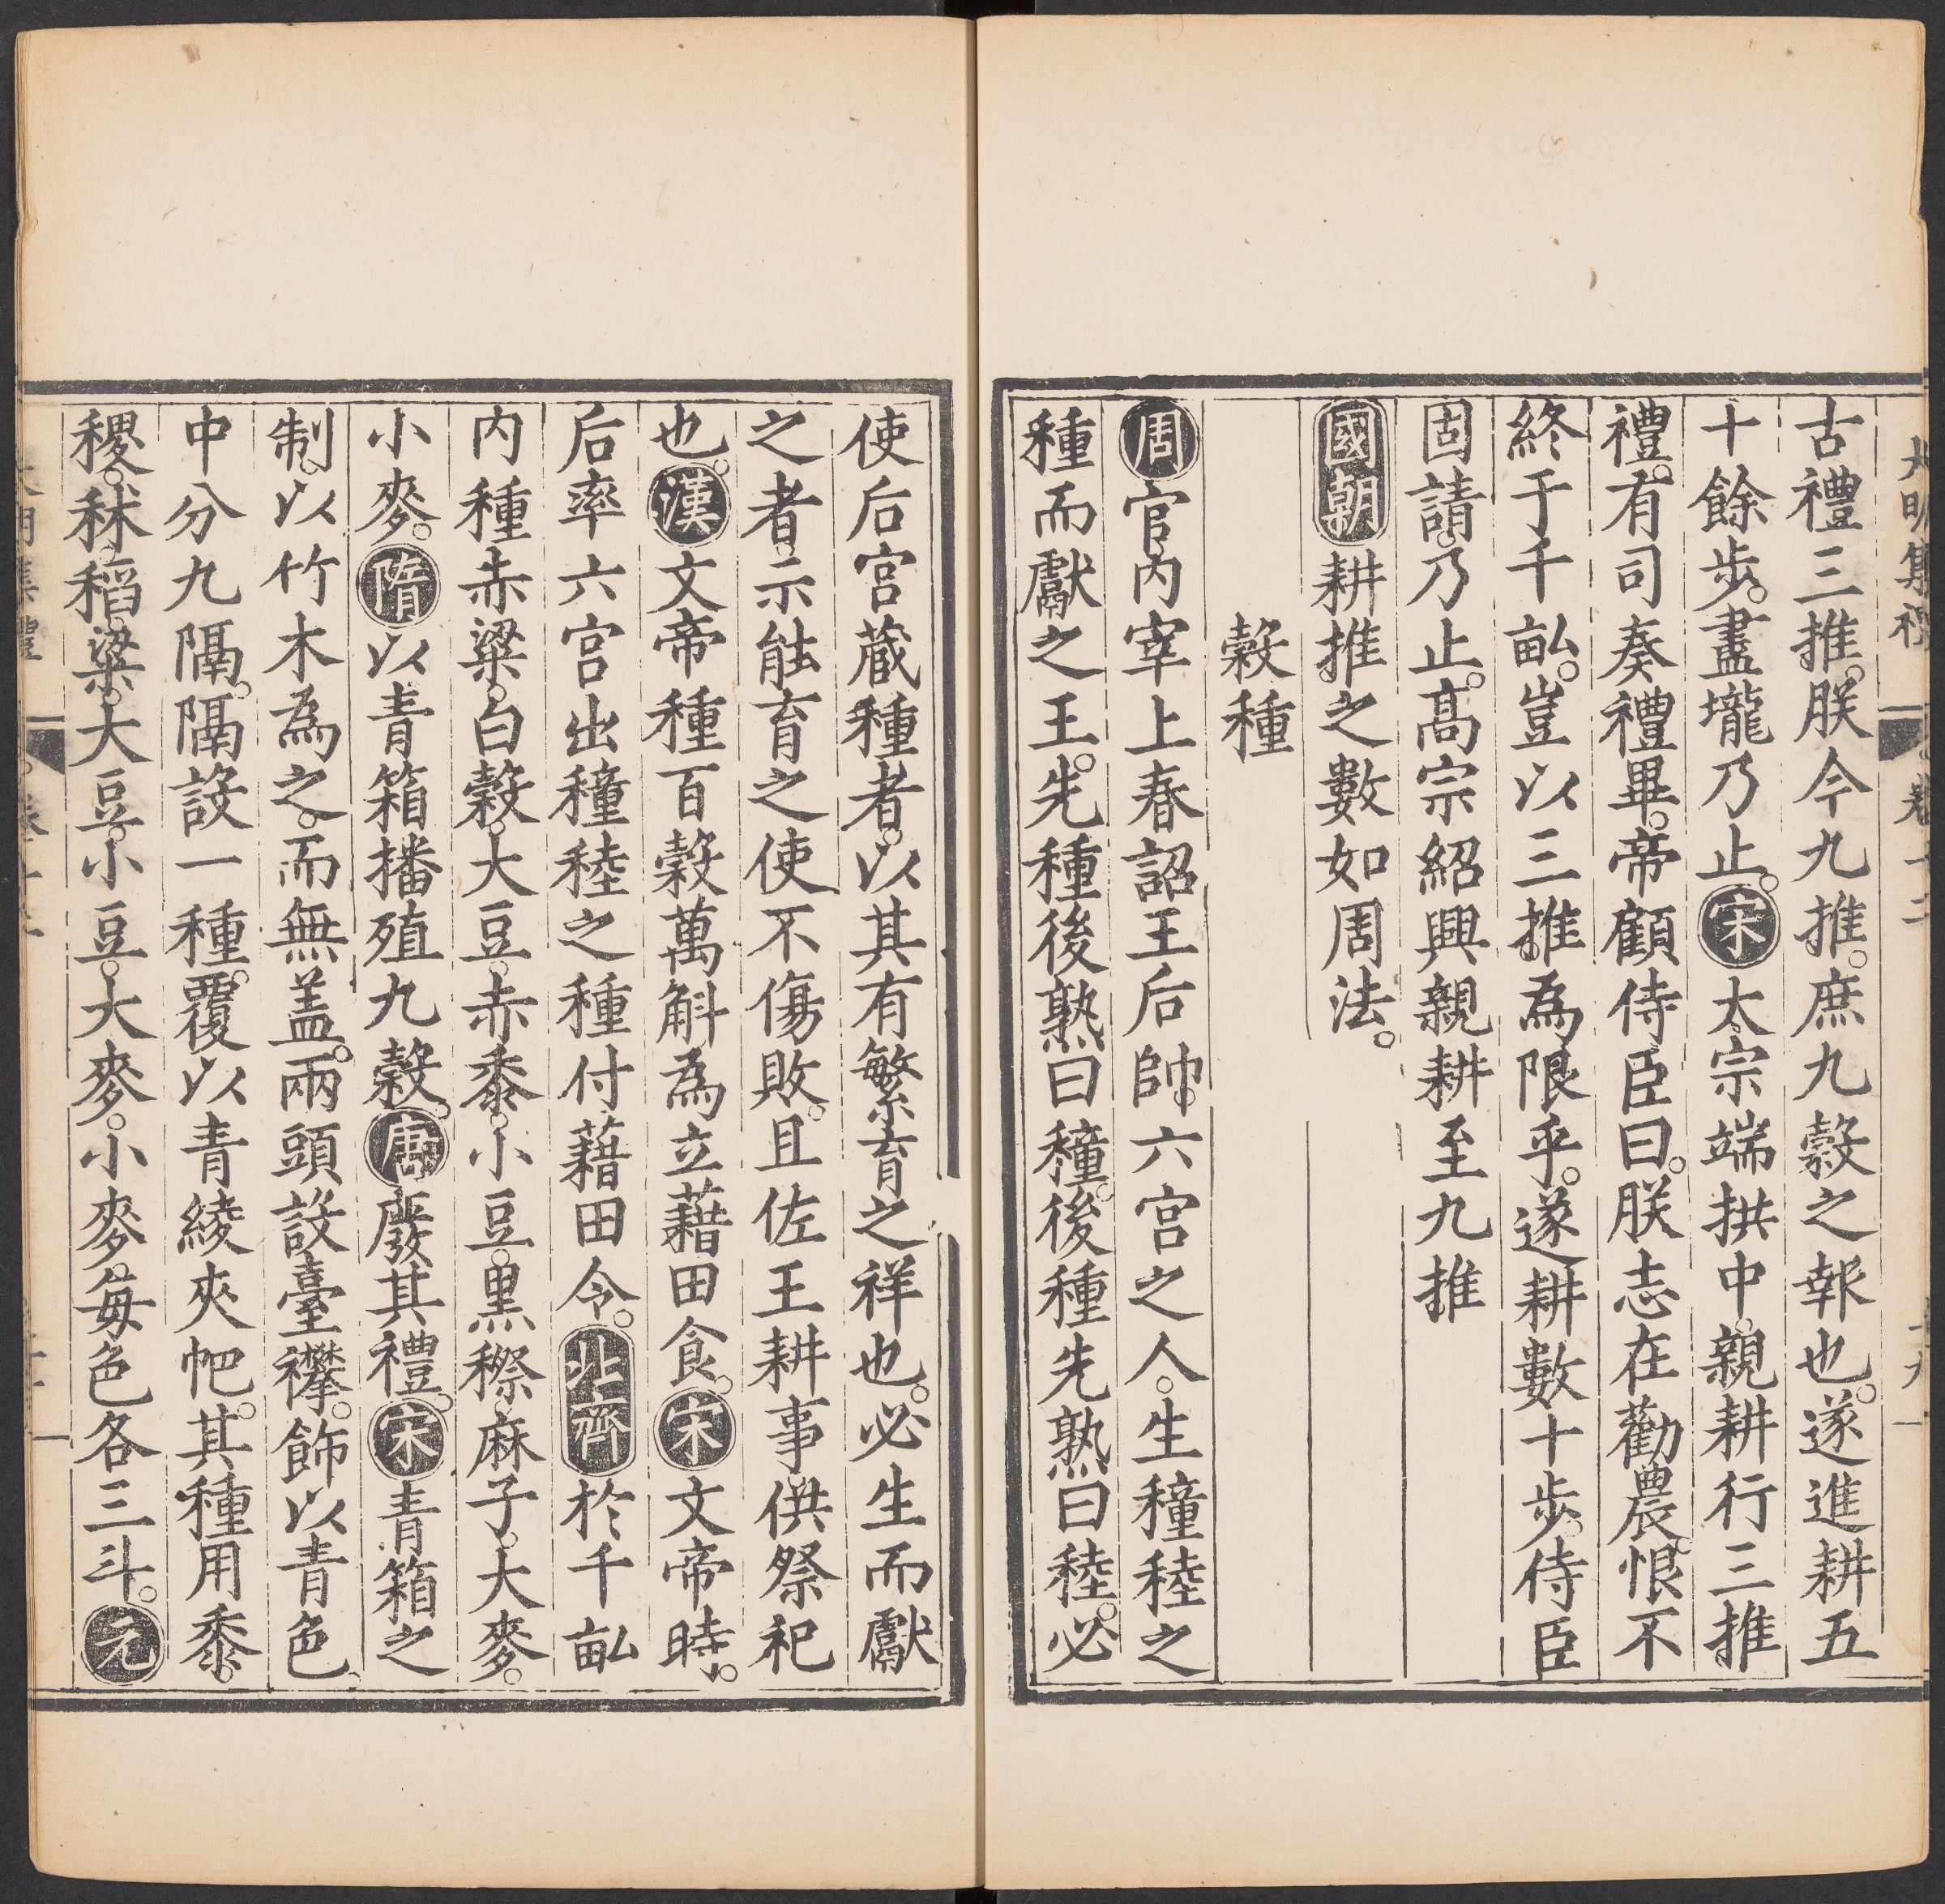 古禮三推。朕今九推。庶九穀之報也。遂進耕五
十餘步。盡壠乃止。宋太宗端拱中。親耕行三推
禮。有司奏禮畢。帝顧侍臣曰。朕志在勸農。恨不
終于千畝。豈以三推。為限乎。遂耕數十步。侍臣
固請。乃止。高宗紹興親耕至九推
國朝耕推之數如周法。
穀種
周官內宰上春詔王后帥。六宮之人。生穜稑之
種而獻之王。先種後熟曰穜。後種先熟曰稑。必
使后宮藏種者。以其有繁育之祥也。必生而獻
之者。示能育之使不傷敗。且佐王耕事。供祭祀
也。漢文帝種百穀萬斛為立藉田倉。宋文帝時。
后率六宮出穜稑之種付藉田令。北齊於千畝
內種赤粱。白穀。大豆。赤黍。小豆。黑穄。麻子。大麥。
小麥。隋以青箱播殖九穀。唐廢其禮。宋青箱之
制。以竹木為之。而無盖。兩頭設臺襻。飾以青色。
中分九隔。隔設一種。覆以青綾夾帊。其種用黍。
稷。秫。稻。粱。大豆。小豆。大麥。小麥。每色各三斗。元